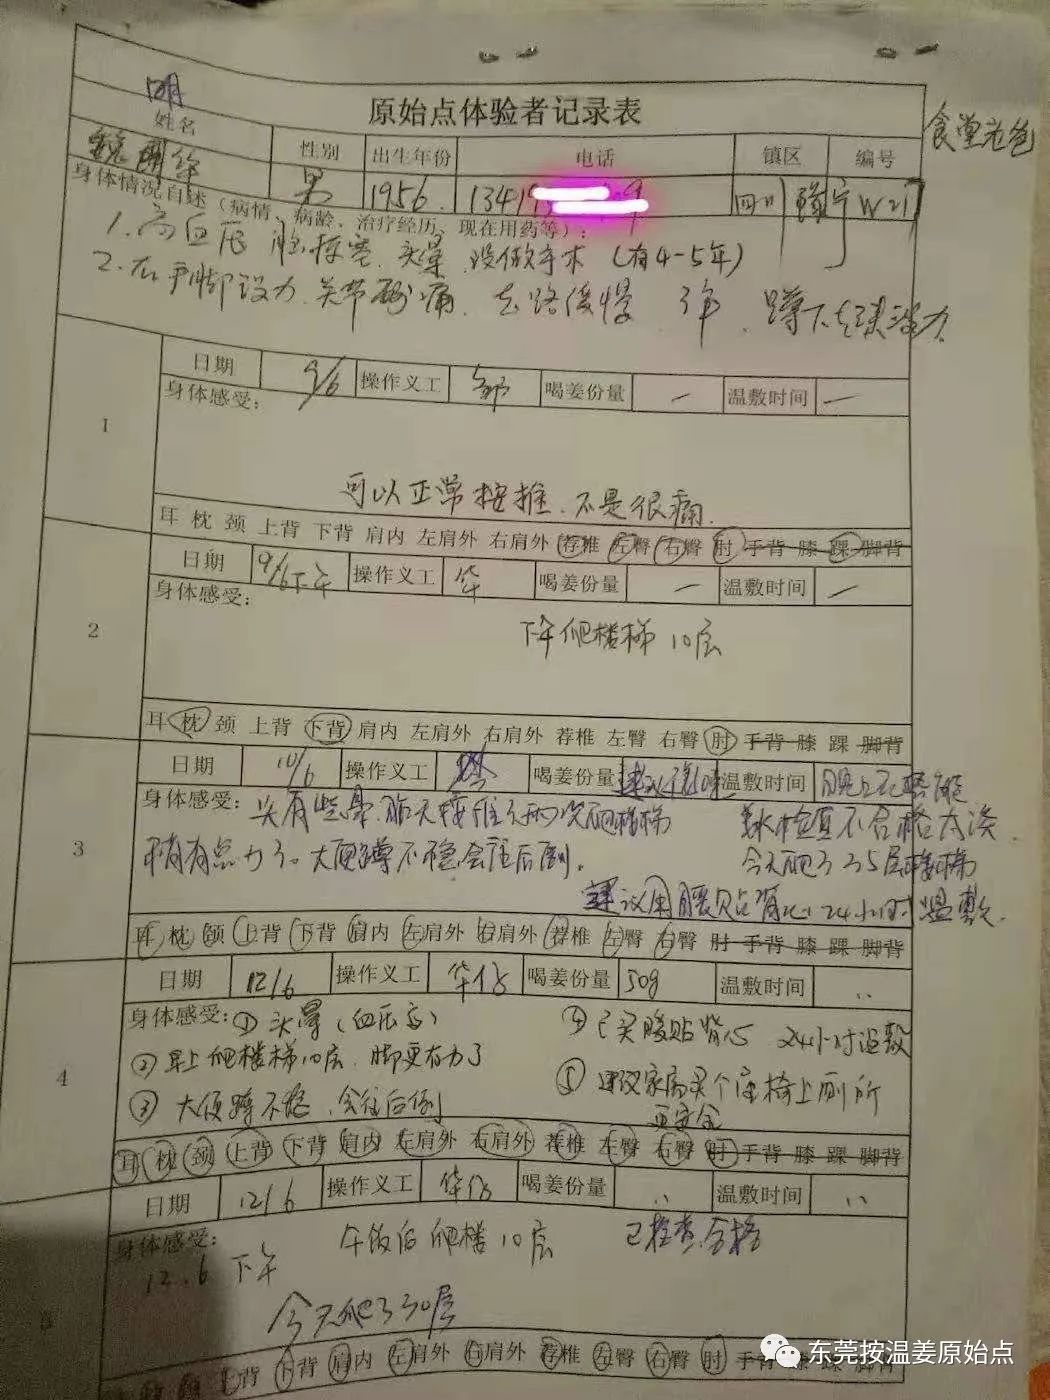 原始点体验者记录表
食堂老爸
明
姓名 性别 出生年份 电话 镇区 编号
男 1956. 四川遂宁 W21
身体情况自述（病情、病龄、治疗经历、现在用药等）：
1. 高血压 脑梗塞. 头晕. 没做手术（有4-5年）
2. 右手脚没力. 关节酸痛. 走路缓慢 3年. 蹲下起来没力
1
日期 9/6 操作义工 邹 喝姜份量 — 温敷时间 —
身体感受：
可以正常按推. 不是很痛.
耳 枕 颈 上背 下背 肩内 左肩外 右肩外 荐椎 左臀 右臀 肘 手背 膝 踝 脚背
2
日期 9/6下午 操作义工 华 喝姜份量 — 温敷时间 —
身体感受：
下午爬楼梯 10层
耳 枕 颈 上背 下背 肩内 左肩外 右肩外 荐椎 左臀 右臀 肘 手背 膝 踝 脚背
3
日期 10/6 操作义工 喝姜份量 温敷时间
身体感受： 头有些晕. 姜水检查不合格太淡.
稍有点力了. 大便蹲不稳会往后倒. 今天爬了35层楼梯
建议用暖贴背心24小时温敷.
耳 枕 颈 上背 下背 肩内 左肩外 右肩外 荐椎 左臀 右臀 肘 手背 膝 踝 脚背
4
日期 12/6 操作义工 喝姜份量 50g 温敷时间
身体感受：① 头晕（血压高） ④ 已买暖贴背心 24小时温敷
② 早上爬楼梯10层. 脚更有力了 ⑤ 建议家属买个座椅上厕所
③ 大便蹲不稳. 会往后倒 更安全
耳 枕 颈 上背 下背 肩内 左肩外 右肩外 荐椎 左臀 右臀 肘 手背 膝 踝 脚背
日期 12/6 操作义工 喝姜份量 温敷时间
身体感受： 午饭后爬楼10层 已检查合格
12.6 下午
今天爬了30层
背 下背 肩内 左肩外 右肩外 荐椎 左臀 右臀 肘 手背 膝 踝 脚背
东莞按温姜原始点